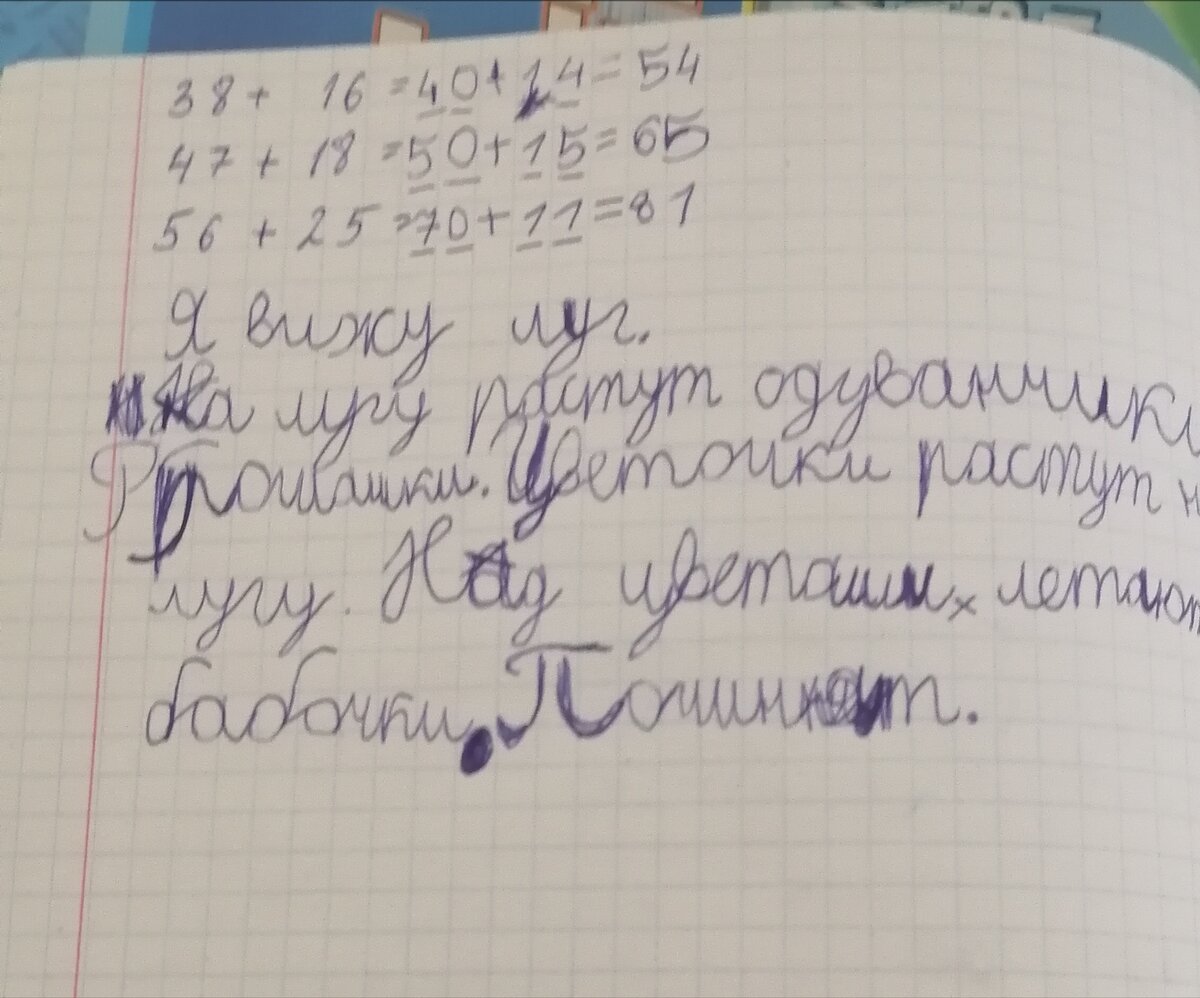 38 + 16 = 40 + 14 = 54
47 + 18 = 50 + 15 = 65
56 + 25 = 70 + 11 = 81
Я вижу луг.
На лугу растут одуванчики
Цветочки растут н
лугу. Над цветами летают
бабочки.